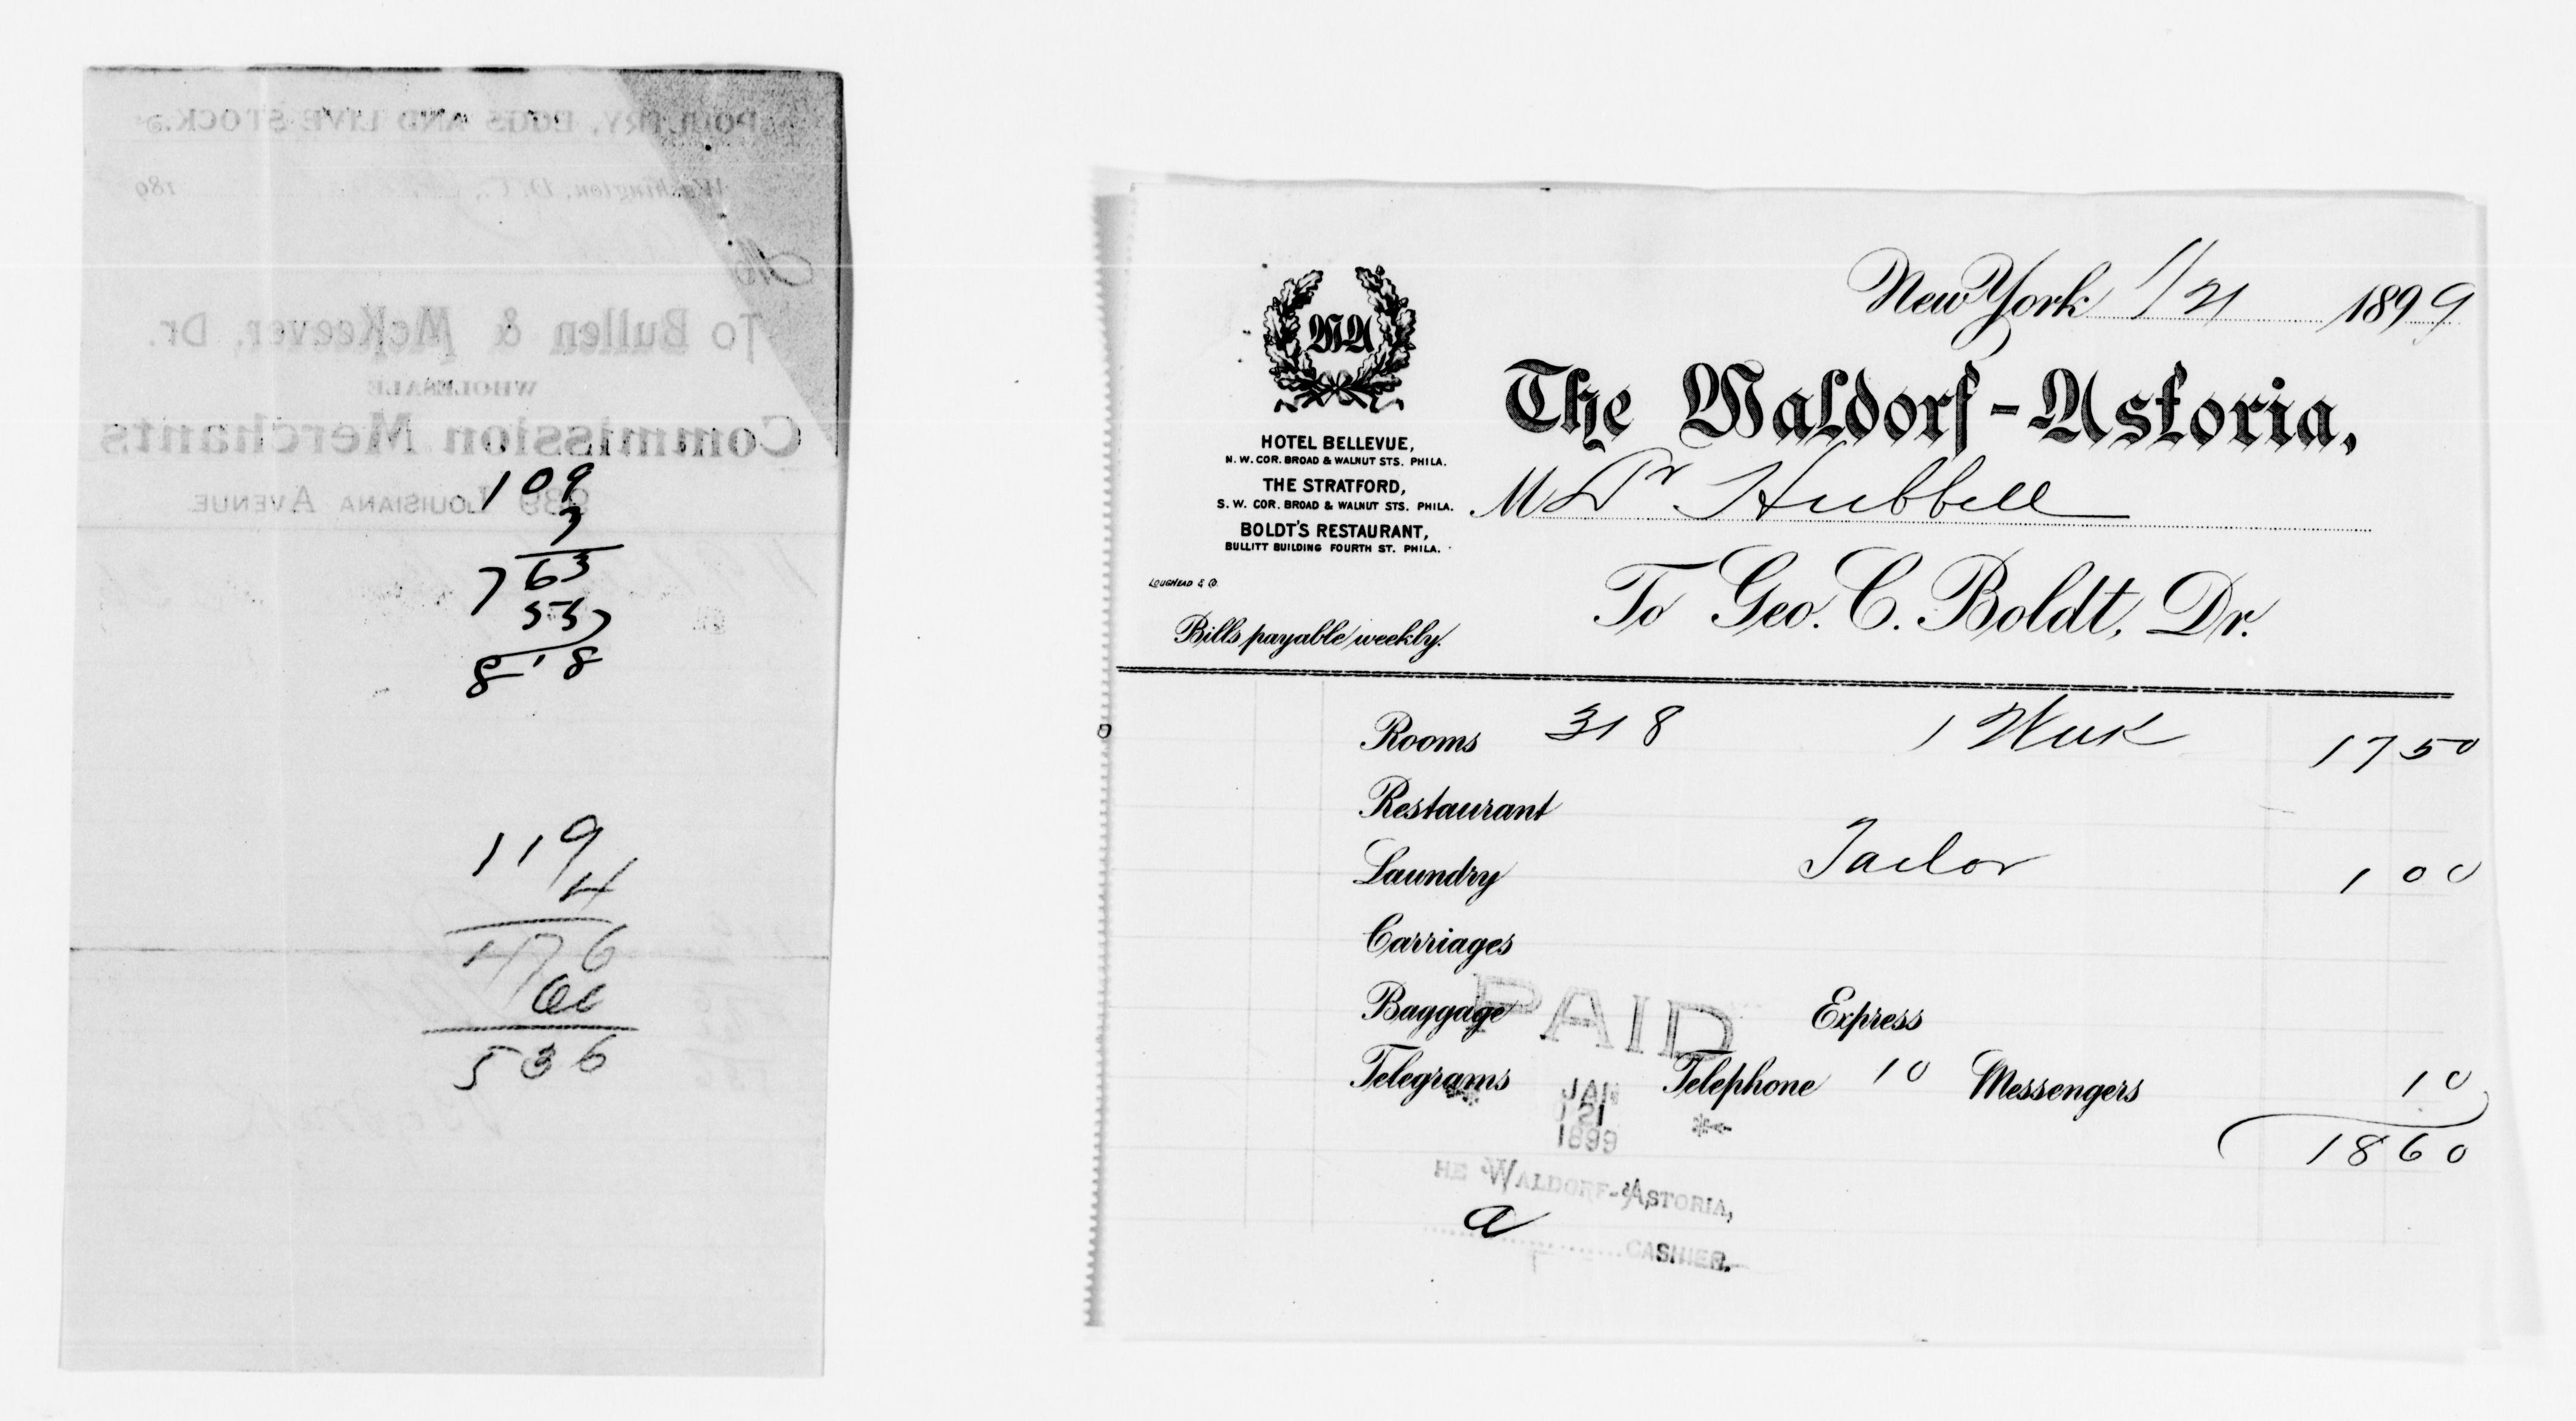 POULTRY, EGGS AND LIVE STOCK.
Washington, D. C., 189
M
To Bullen & McKeever, Dr.
WHOLESALE
Commission Merchants
939 LOUISIANA AVENUE
109
7
763
55
818
119
4
476
60
536
New York 1/21 1899
WA
The Waldorf-Astoria,
HOTEL BELLEVUE,
N. W. COR. BROAD & WALNUT STS. PHILA.
THE STRATFORD,
S. W. COR. BROAD & WALNUT STS. PHILA.
BOLDT'S RESTAURANT,
BULLITT BUILDING FOURTH ST. PHILA.
M Dr Hubbell
LOUGHEAD & Co.
To Geo. C. Boldt, Dr.
Bills payable weekly.
Rooms 318 1 Week 17 50
Restaurant
Laundry Tailor 1 00
Carriages
Baggage Express
PAID
Telegrams Telephone 10 Messengers 10
JAN
21
1899
18 60
HE WALDORF-ASTORIA,
a
CASHIER.